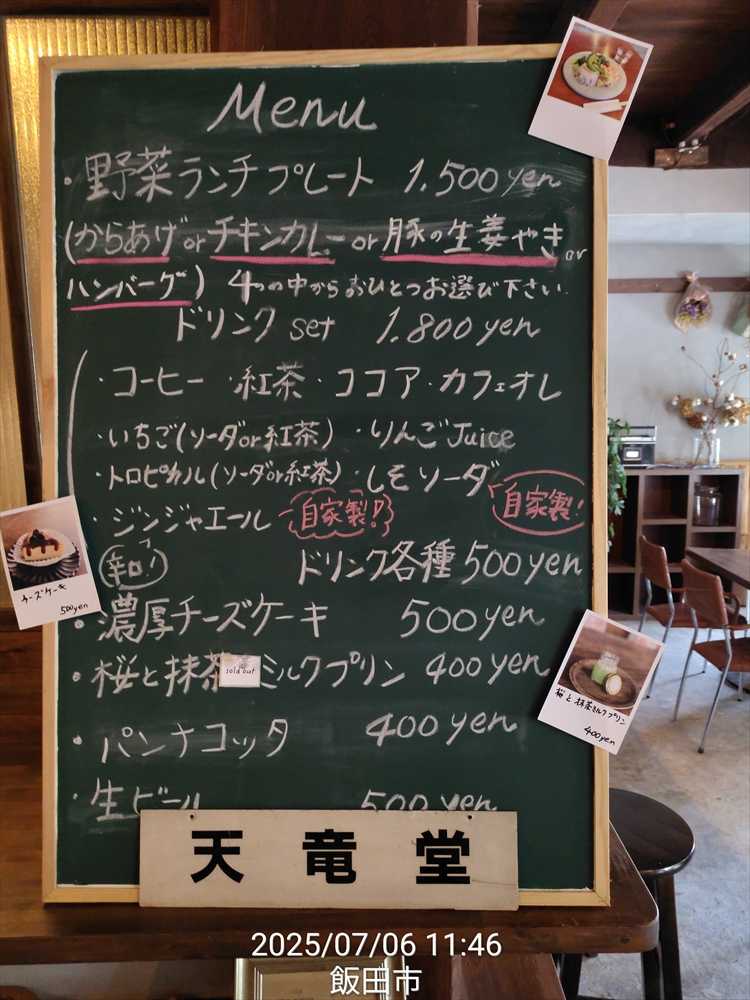 Menu
・野菜ランチプレート 1.500yen
(からあげorチキンカレーor豚の生姜やきor
ハンバーグ) 4つの中からおひとつお選び下さい
ドリンクset 1.800yen
・コーヒー ・紅茶 ・ココア・カフェオレ
・いちご(ソーダor紅茶) ・りんごJuice
・トロピカル(ソーダor紅茶)・しそソーダ 自家製!
・ジンジャエール 自家製!
辛口! ドリンク各種500yen
・濃厚チーズケーキ 500yen
・桜と抹茶ミルクプリン 400yen
sold out
・パンナコッタ 400yen
・生ビール 500yen
チーズケーキ
500yen
桜と抹茶ミルクプリン
400yen
天竜堂
2025/07/06 11:46
飯田市